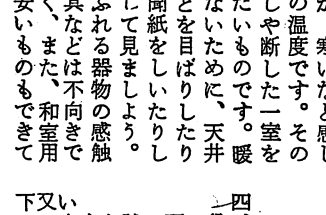 、寒いなと感じ
の温度です。その
しゃ断した一室を
たいものです。暖
ないために、天井
とを目ばりしたり
聞紙をしいたりし
て見ましょう。
ふれる器物の感触
具などは不向きで
く、また、和室用
安いものもできて
四
い
又
下